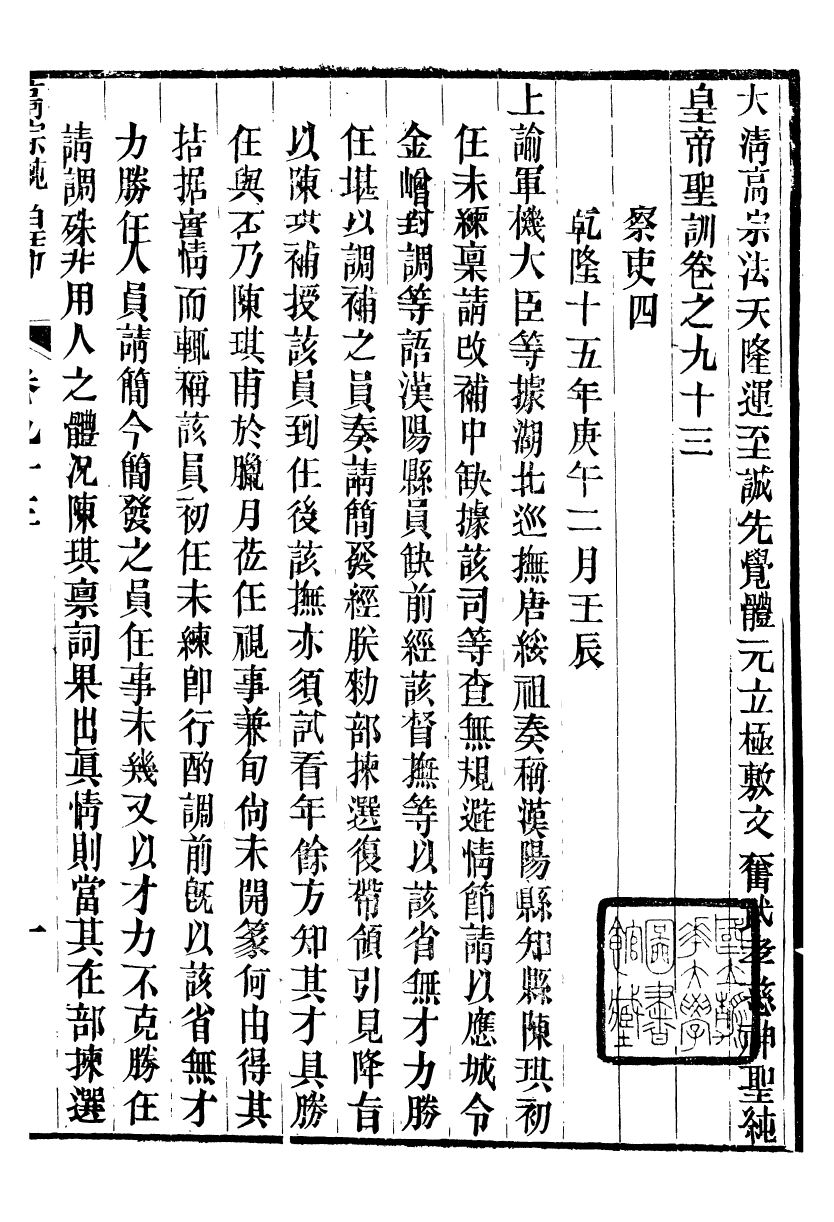 大清高宗法天隆運至誠先覺體元立極敷文奮武孝慈神聖純
皇帝聖訓卷之九十三
察吏四
乾隆十五年庚午二月壬辰
上諭軍機大臣等據湖北巡撫唐綏祖奏稱漢陽縣知縣陳琪初
任未練稟請改補中缺據該司等查無規避情節請以應城令
金嶒對調等語漢陽縣員缺前經該督撫等以該省無才力勝
任堪以調補之員奏請簡發經朕勅部揀選復帶領引見降旨
以陳琪補授該員到任後該撫亦須試看年餘方知其才具勝
任與否乃陳琪甫於臘月莅任視事兼旬尚未開篆何由得其
拮据實情而輒稱該員初任未練卽行酌調前旣以該省無才
力勝任人員請簡今簡發之員任事未幾又以才力不克勝任
請調殊非用人之體況陳琪禀詞果出眞情則當其在部揀選
高宗純皇帝
卷九十三
一
圖書
館藏